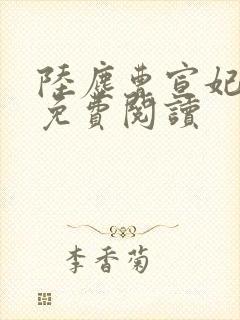 陸塵曹宣妃
免費閱讀
李香菊